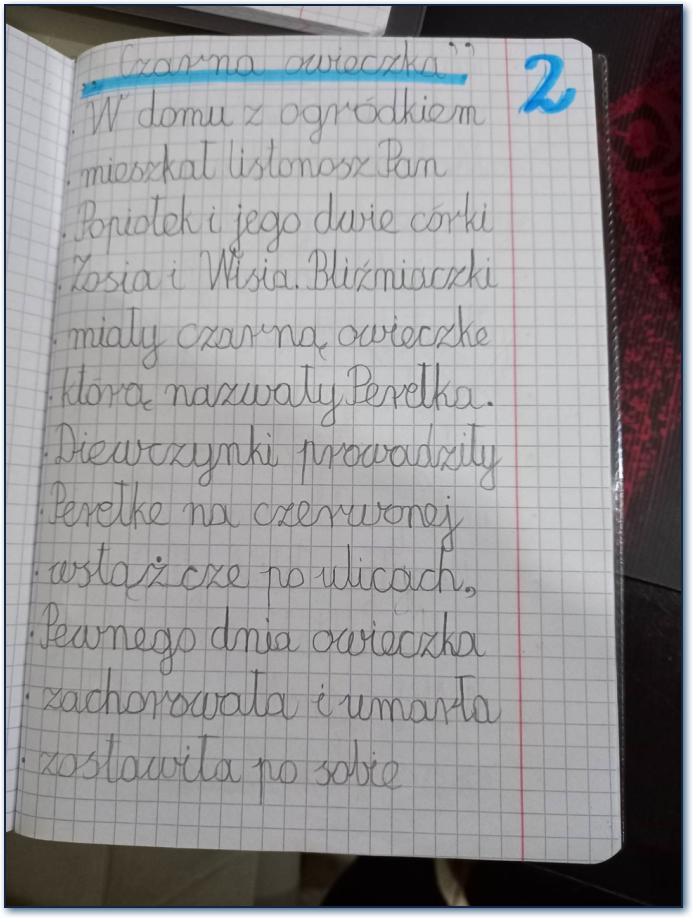 „Czarna owieczka”
2
W domu z ogródkiem
mieszkał listonosz Pan
Popiołek i jego dwie córki
Zosia i Wisia. Bliźniaczki
miały czarną owieczke
którą nazwały Perełka.
Diewczynki prowadziły
Perełke na czerwonej
wstążcze po ulicach.
Pewnego dnia owieczka
zachorowała i umarła
zostawiła po sobie